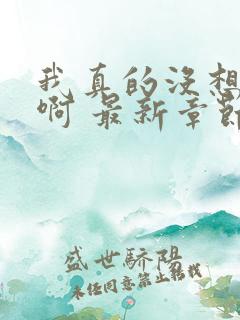 我真的没想
啊 最新章節
盛世骄陽
未经同意禁止转载